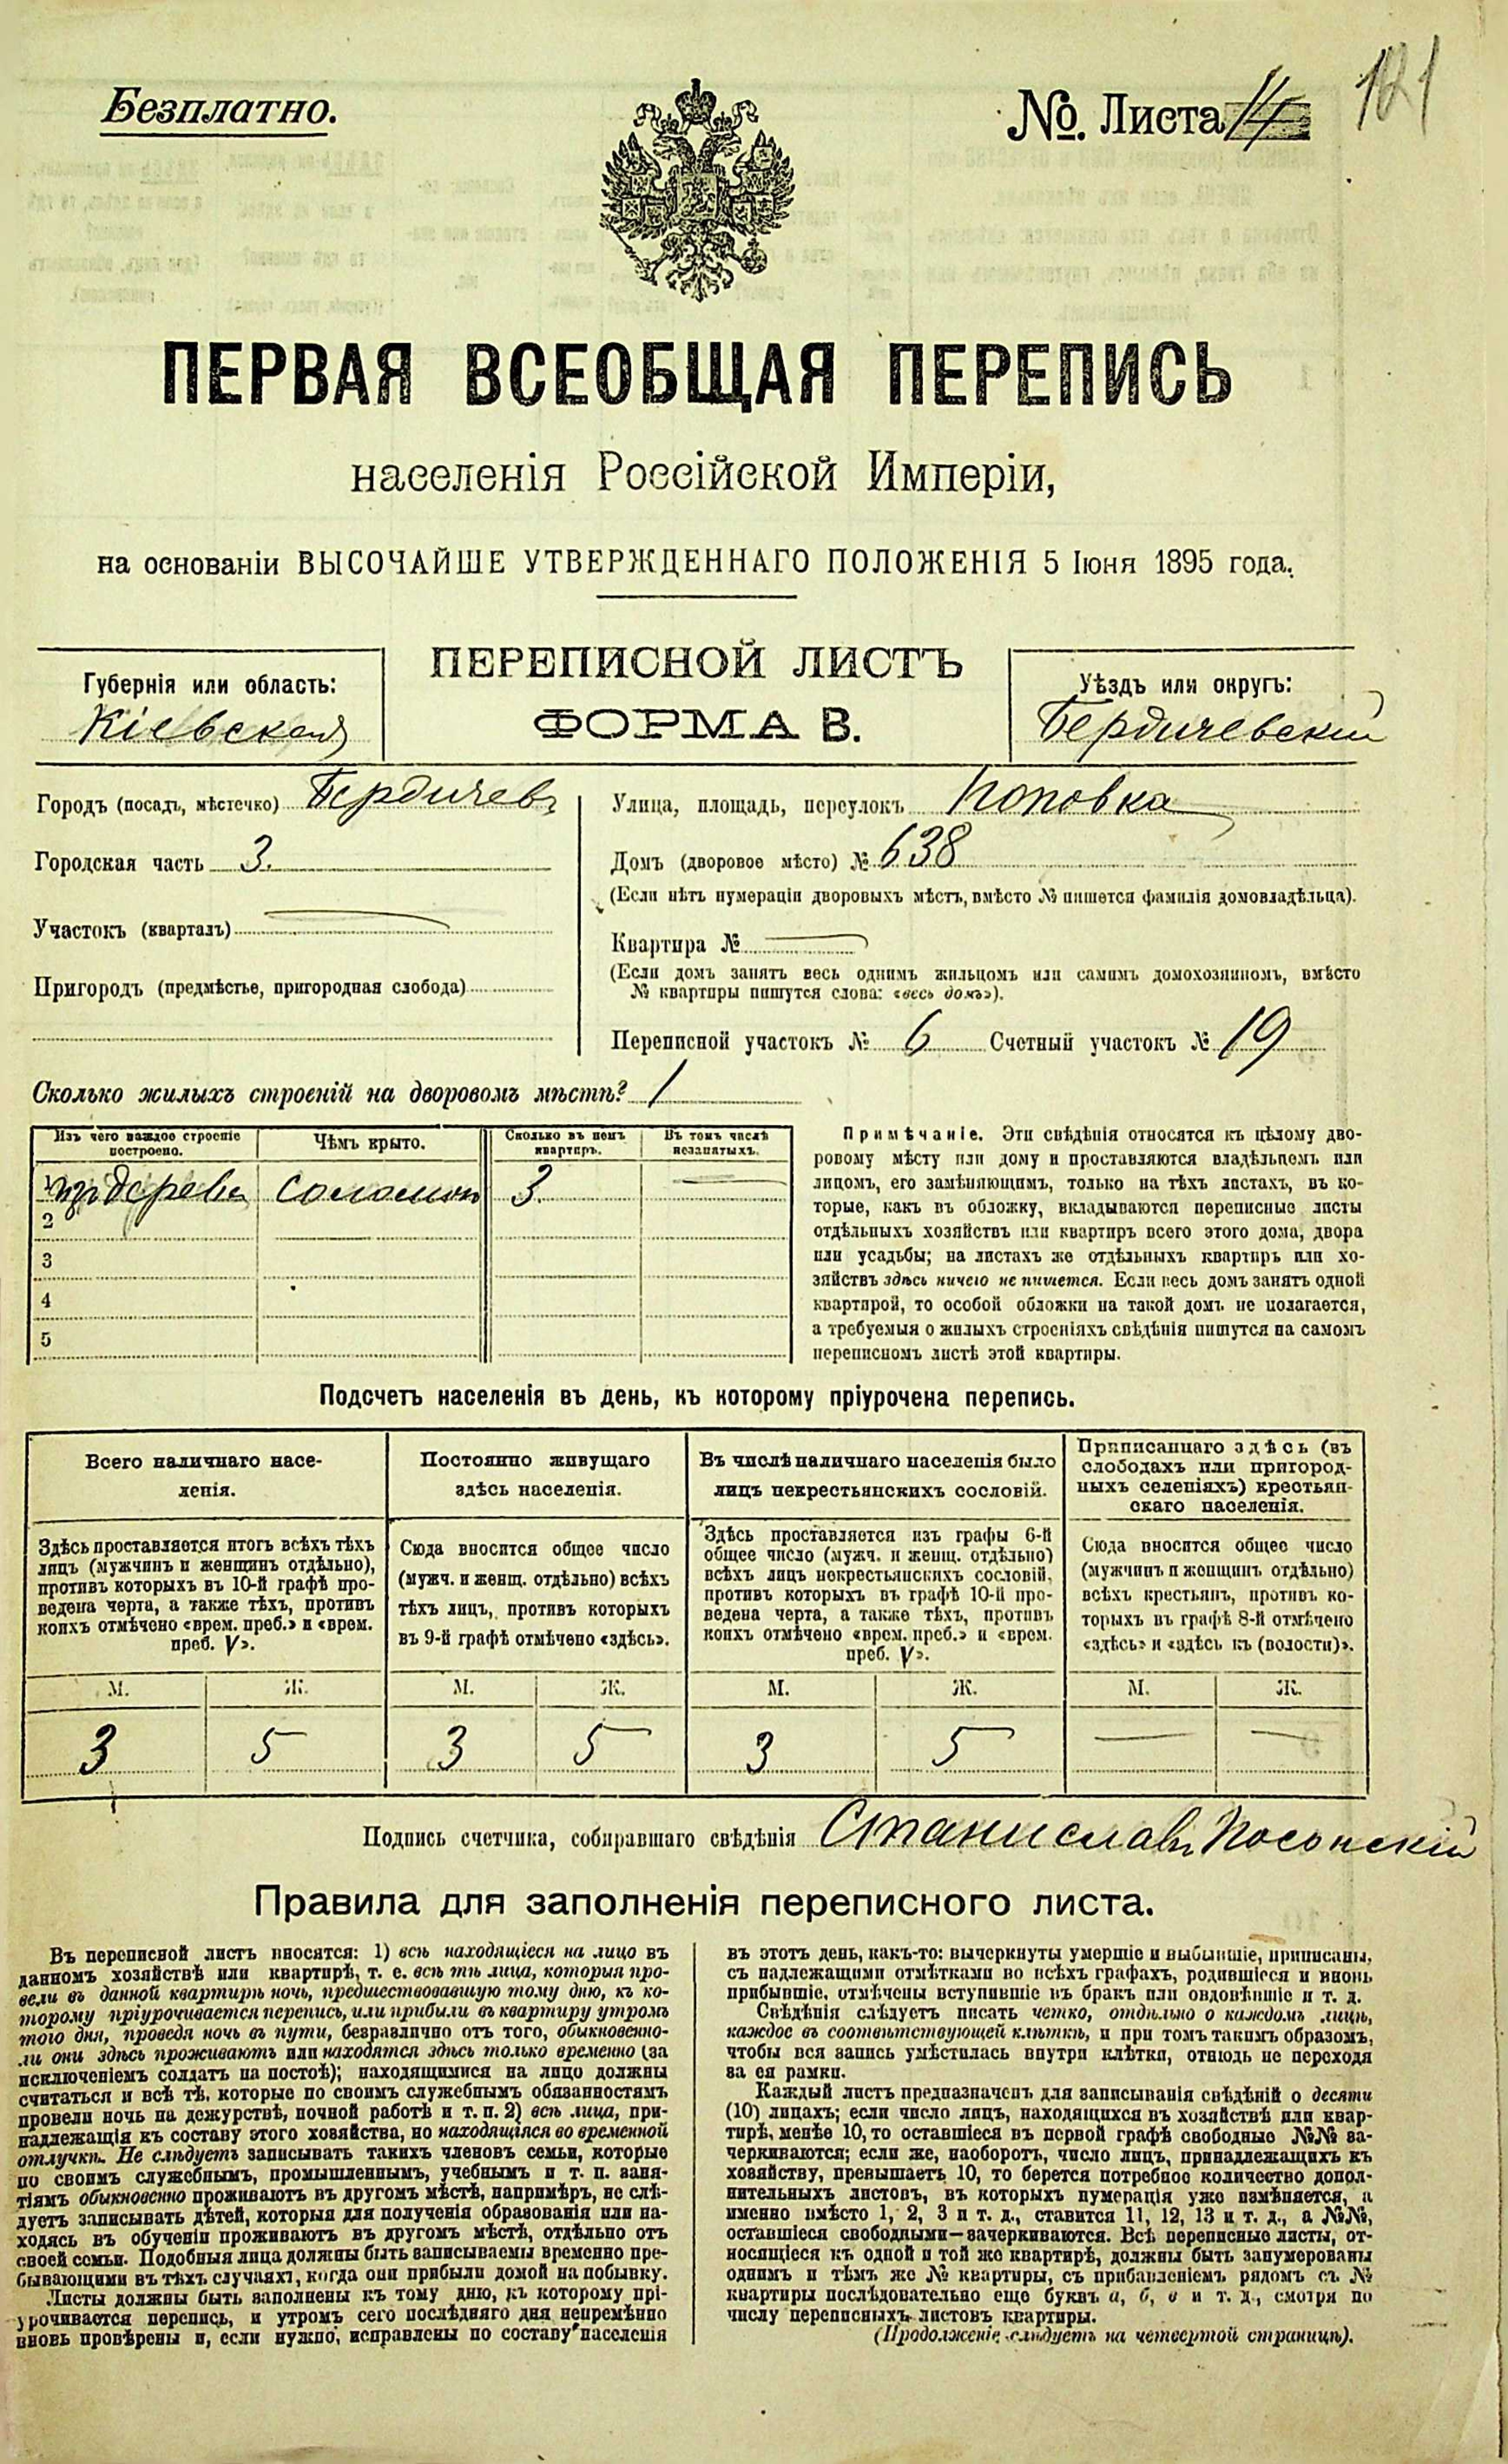 Безплатно.
№. Листа 14
121
ПЕРВАЯ ВСЕОБЩАЯ ПЕРЕПИСЬ
населенія Россійской Имперіи,
на основаніи ВЫСОЧАЙШЕ УТВЕРЖДЕННАГО ПОЛОЖЕНІЯ 5 Іюня 1895 года.
Губернія или область:
Кіевская
ПЕРЕПИСНОЙ ЛИСТЪ
ФОРМА В.
Уѣздъ или округъ:
Бердичевскій
Городъ (посадъ, мѣстечко) Бердичевъ
Городская часть 3.
Участокъ (кварталъ)
Пригородъ (предмѣстье, пригородная слобода)
Улица, площадь, переулокъ Поповка
Домъ (дворовое мѣсто) № 638
(Если нѣтъ нумераціи дворовыхъ мѣстъ, вмѣсто № пишется фамилія домовладѣльца).
Квартира №
(Если домъ занятъ весь однимъ жильцомъ или самимъ домохозяиномъ, вмѣсто
№ квартиры пишутся слова: «весь домъ»).
Переписной участокъ № 6 Счетный участокъ № 19
Сколько жилыхъ строеній на дворовомъ мѣстѣ? 1
Изъ чего каждое строеніе
построено.
Чѣмъ крыто.
Сколько въ немъ
квартиръ.
Въ томъ числѣ
незанятыхъ.
1 изъ дерева соломой 3
2
3
4
5
Примѣчаніе. Эти свѣдѣнія относятся къ цѣлому дво-
ровому мѣсту или дому и проставляются владѣльцемъ или
лицомъ, его замѣняющимъ, только на тѣхъ листахъ, въ ко-
торые, какъ въ обложку, вкладываются переписные листы
отдѣльныхъ хозяйствъ или квартиръ всего этого дома, двора
или усадьбы; на листахъ же отдѣльныхъ квартиръ или хо-
зяйствъ здѣсь ничего не пишется. Если весь домъ занятъ одной
квартирой, то особой обложки на такой домъ не полагается,
а требуемыя о жилыхъ строеніяхъ свѣдѣнія пишутся на самомъ
переписномъ листѣ этой квартиры.
Подсчетъ населенія въ день, къ которому пріурочена перепись.
Всего наличнаго насе-
ленія.
Здѣсь проставляется итогъ всѣхъ тѣхъ
лицъ (мужчинъ и женщинъ отдѣльно),
противъ которыхъ въ 10-й графѣ про-
ведена черта, а также тѣхъ, противъ
коихъ отмѣчено «врем. преб.» и «врем.
преб. V».
Постоянно живущаго
здѣсь населенія.
Сюда вносится общее число
(мужч. и женщ. отдѣльно) всѣхъ
тѣхъ лицъ, противъ которыхъ
въ 9-й графѣ отмѣчено «здѣсь».
Въ числѣ наличнаго населенія было
лицъ некрестьянскихъ сословій.
Здѣсь проставляется изъ графы 6-й
общее число (мужч. и женщ. отдѣльно)
всѣхъ лицъ некрестьянскихъ сословій,
противъ которыхъ въ графѣ 10-й про-
ведена черта, а также тѣхъ, противъ
коихъ отмѣчено «врем. преб.» и «врем.
преб. V».
Приписаннаго здѣсь (въ
слободахъ или пригород-
ныхъ селеніяхъ) крестьян-
скаго населенія.
Сюда вносится общее число
(мужчинъ и женщинъ отдѣльно)
всѣхъ крестьянъ, противъ ко-
торыхъ въ графѣ 8-й отмѣчено
«здѣсь» и «здѣсь къ (волости)».
М. Ж. М. Ж. М. Ж. М. Ж.
3 5 3 5 3 5
Подпись счетчика, собиравшаго свѣдѣнія Станиславъ
Правила для заполненія переписного листа.
Въ переписной листъ вносятся: 1) всѣ находящіеся на лицо въ
данномъ хозяйствѣ или квартирѣ, т. е. всѣ тѣ лица, которыя про-
вели въ данной квартирѣ ночь, предшествовавшую тому дню, къ ко-
торому пріурочивается перепись, или прибыли въ квартиру утромъ
того дня, проведя ночь въ пути, безразлично отъ того, обыкновенно-
ли они здѣсь проживаютъ или находятся здѣсь только временно (за
исключеніемъ солдатъ на постоѣ); находящимися на лицо должны
считаться и всѣ тѣ, которые по своимъ служебнымъ обязанностямъ
провели ночь на дежурствѣ, ночной работѣ и т. п. 2) всѣ лица, при-
надлежащія къ составу этого хозяйства, но находящіяся во временной
отлучкѣ. Не слѣдуетъ записывать такихъ членовъ семьи, которые
по своимъ служебнымъ, промышленнымъ, учебнымъ и т. п. заня-
тіямъ обыкновенно проживаютъ въ другомъ мѣстѣ, напримѣръ, не слѣ-
дуетъ записывать дѣтей, которыя для полученія образованія или на-
ходясь въ обученіи проживаютъ въ другомъ мѣстѣ, отдѣльно отъ
своей семьи. Подобныя лица должны быть записываемы временно пре-
бывающими въ тѣхъ случаяхъ, когда они прибыли домой на побывку.
Листы должны быть заполнены къ тому дню, къ которому прі-
урочивается перепись, и утромъ сего послѣдняго дня непремѣнно
вновь провѣрены и, если нужно, исправлены по составу населенія
въ этотъ день, какъ-то: вычеркнуты умершіе и выбывшіе, приписаны,
съ надлежащими отмѣтками во всѣхъ графахъ, родившіеся и вновь
прибывшіе, отмѣчены вступившіе въ бракъ или овдовѣвшіе и т. д.
Свѣдѣнія слѣдуетъ писать четко, отдѣльно о каждомъ лицѣ,
каждое въ соотвѣтствующей клѣткѣ, и при томъ такимъ образомъ,
чтобы вся запись умѣстилась внутри клѣтки, отнюдь не переходя
за ея рамки.
Каждый листъ предназначенъ для записыванія свѣдѣній о десяти
(10) лицахъ; если число лицъ, находящихся въ хозяйствѣ или квар-
тирѣ, менѣе 10, то оставшіеся въ первой графѣ свободные №№ за-
черкиваются; если же, наоборотъ, число лицъ, принадлежащихъ къ
хозяйству, превышаетъ 10, то берется потребное количество допол-
нительныхъ листовъ, въ которыхъ нумерація уже измѣняется, а
именно вмѣсто 1, 2, 3 и т. д., ставится 11, 12, 13 и т. д., а №№,
оставшіеся свободными—зачеркиваются. Всѣ переписные листы, от-
носящіеся къ одной и той же квартирѣ, должны быть занумерованы
однимъ и тѣмъ же № квартиры, съ прибавленіемъ рядомъ съ №
квартиры послѣдовательно еще буквъ а, б, в и т. д., смотря по
числу переписныхъ листовъ квартиры.
(Продолженіе слѣдуетъ на четвертой страницѣ).